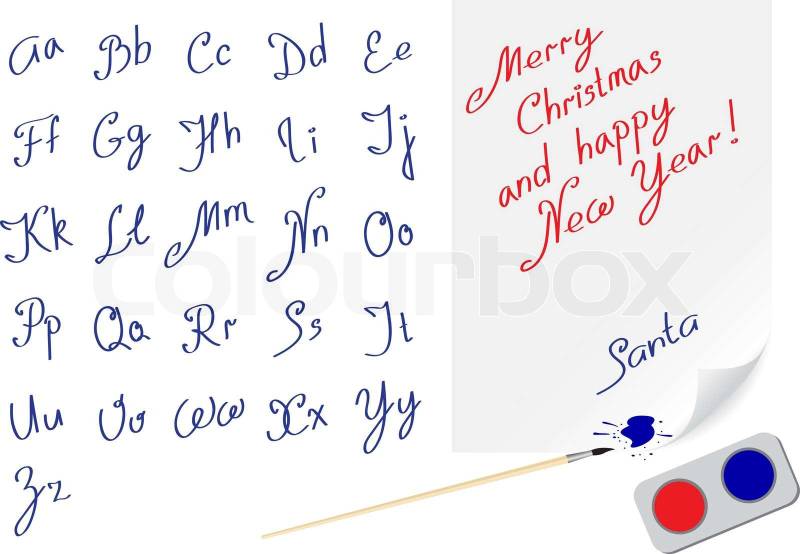 Aa Bb Cc Dd Ee
Ff Gg Hh Ii Jj
Kk Ll Mm Nn Oo
Pp Qq Rr Ss Tt
Uu Vv Ww Xx Yy
Zz
Merry
Christmas
and happy
New Year!
Santa
colourbox